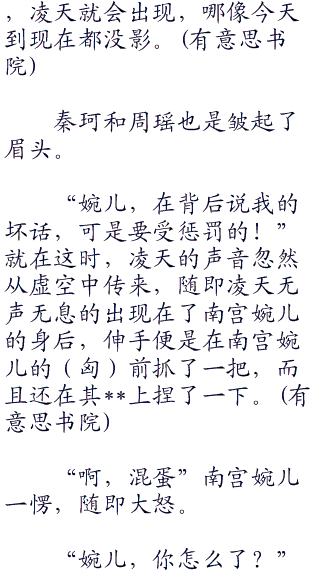 ，凌天就会出现，哪像今天
到现在都没影。（有意思书
院）
秦珂和周瑶也是皱起了
眉头。
“婉儿，在背后说我的
坏话，可是要受惩罚的！”
就在这时，凌天的声音忽然
从虚空中传来，随即凌天无
声无息的出现在了南宫婉儿
的身后，伸手便是在南宫婉
儿的（匈）前抓了一把，而
且还在其**上捏了一下。（有
意思书院）
“啊，混蛋”南宫婉儿
一愣，随即大怒。
“婉儿，你怎么了？”